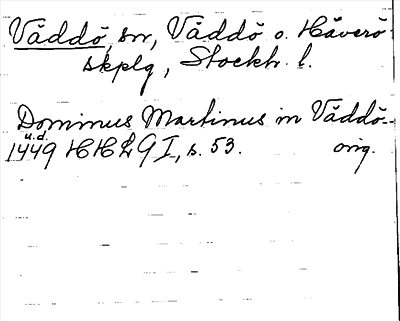 Väddö, sn, Väddö o. Häverö
skplg, Stockh. l.
Dominus Martinus in Väddö
u.d.
1449 HHL 9 I, s. 53. orig.